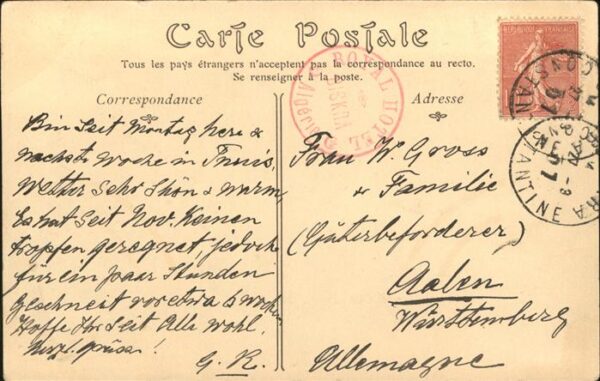 Carte Postale
Tous les pays étrangers n'acceptent pas la correspondance au recto.
Se renseigner à la poste.
Correspondance
Adresse
REPUBLIQUE FRANÇAISE
ROYAL HOTEL
BISKRA
(Algérie)
CONSTANTINE
Bin Seit Montag here &
nachste Woche in Tunis,
Wetter Sehr Schön & warm,
Es hat Seit Nov. Keinen
tropfen geregnet jedoch
für ein paar Stunden
geschneit vor etwa 6 wochen
Hoffe Ihr Seit Alle wohl.
Herzl. Grüsse!
G. R.
Frau W. Gross
& Familie
(Güterbeforderer)
Aalen
Württemberg
Allemagne